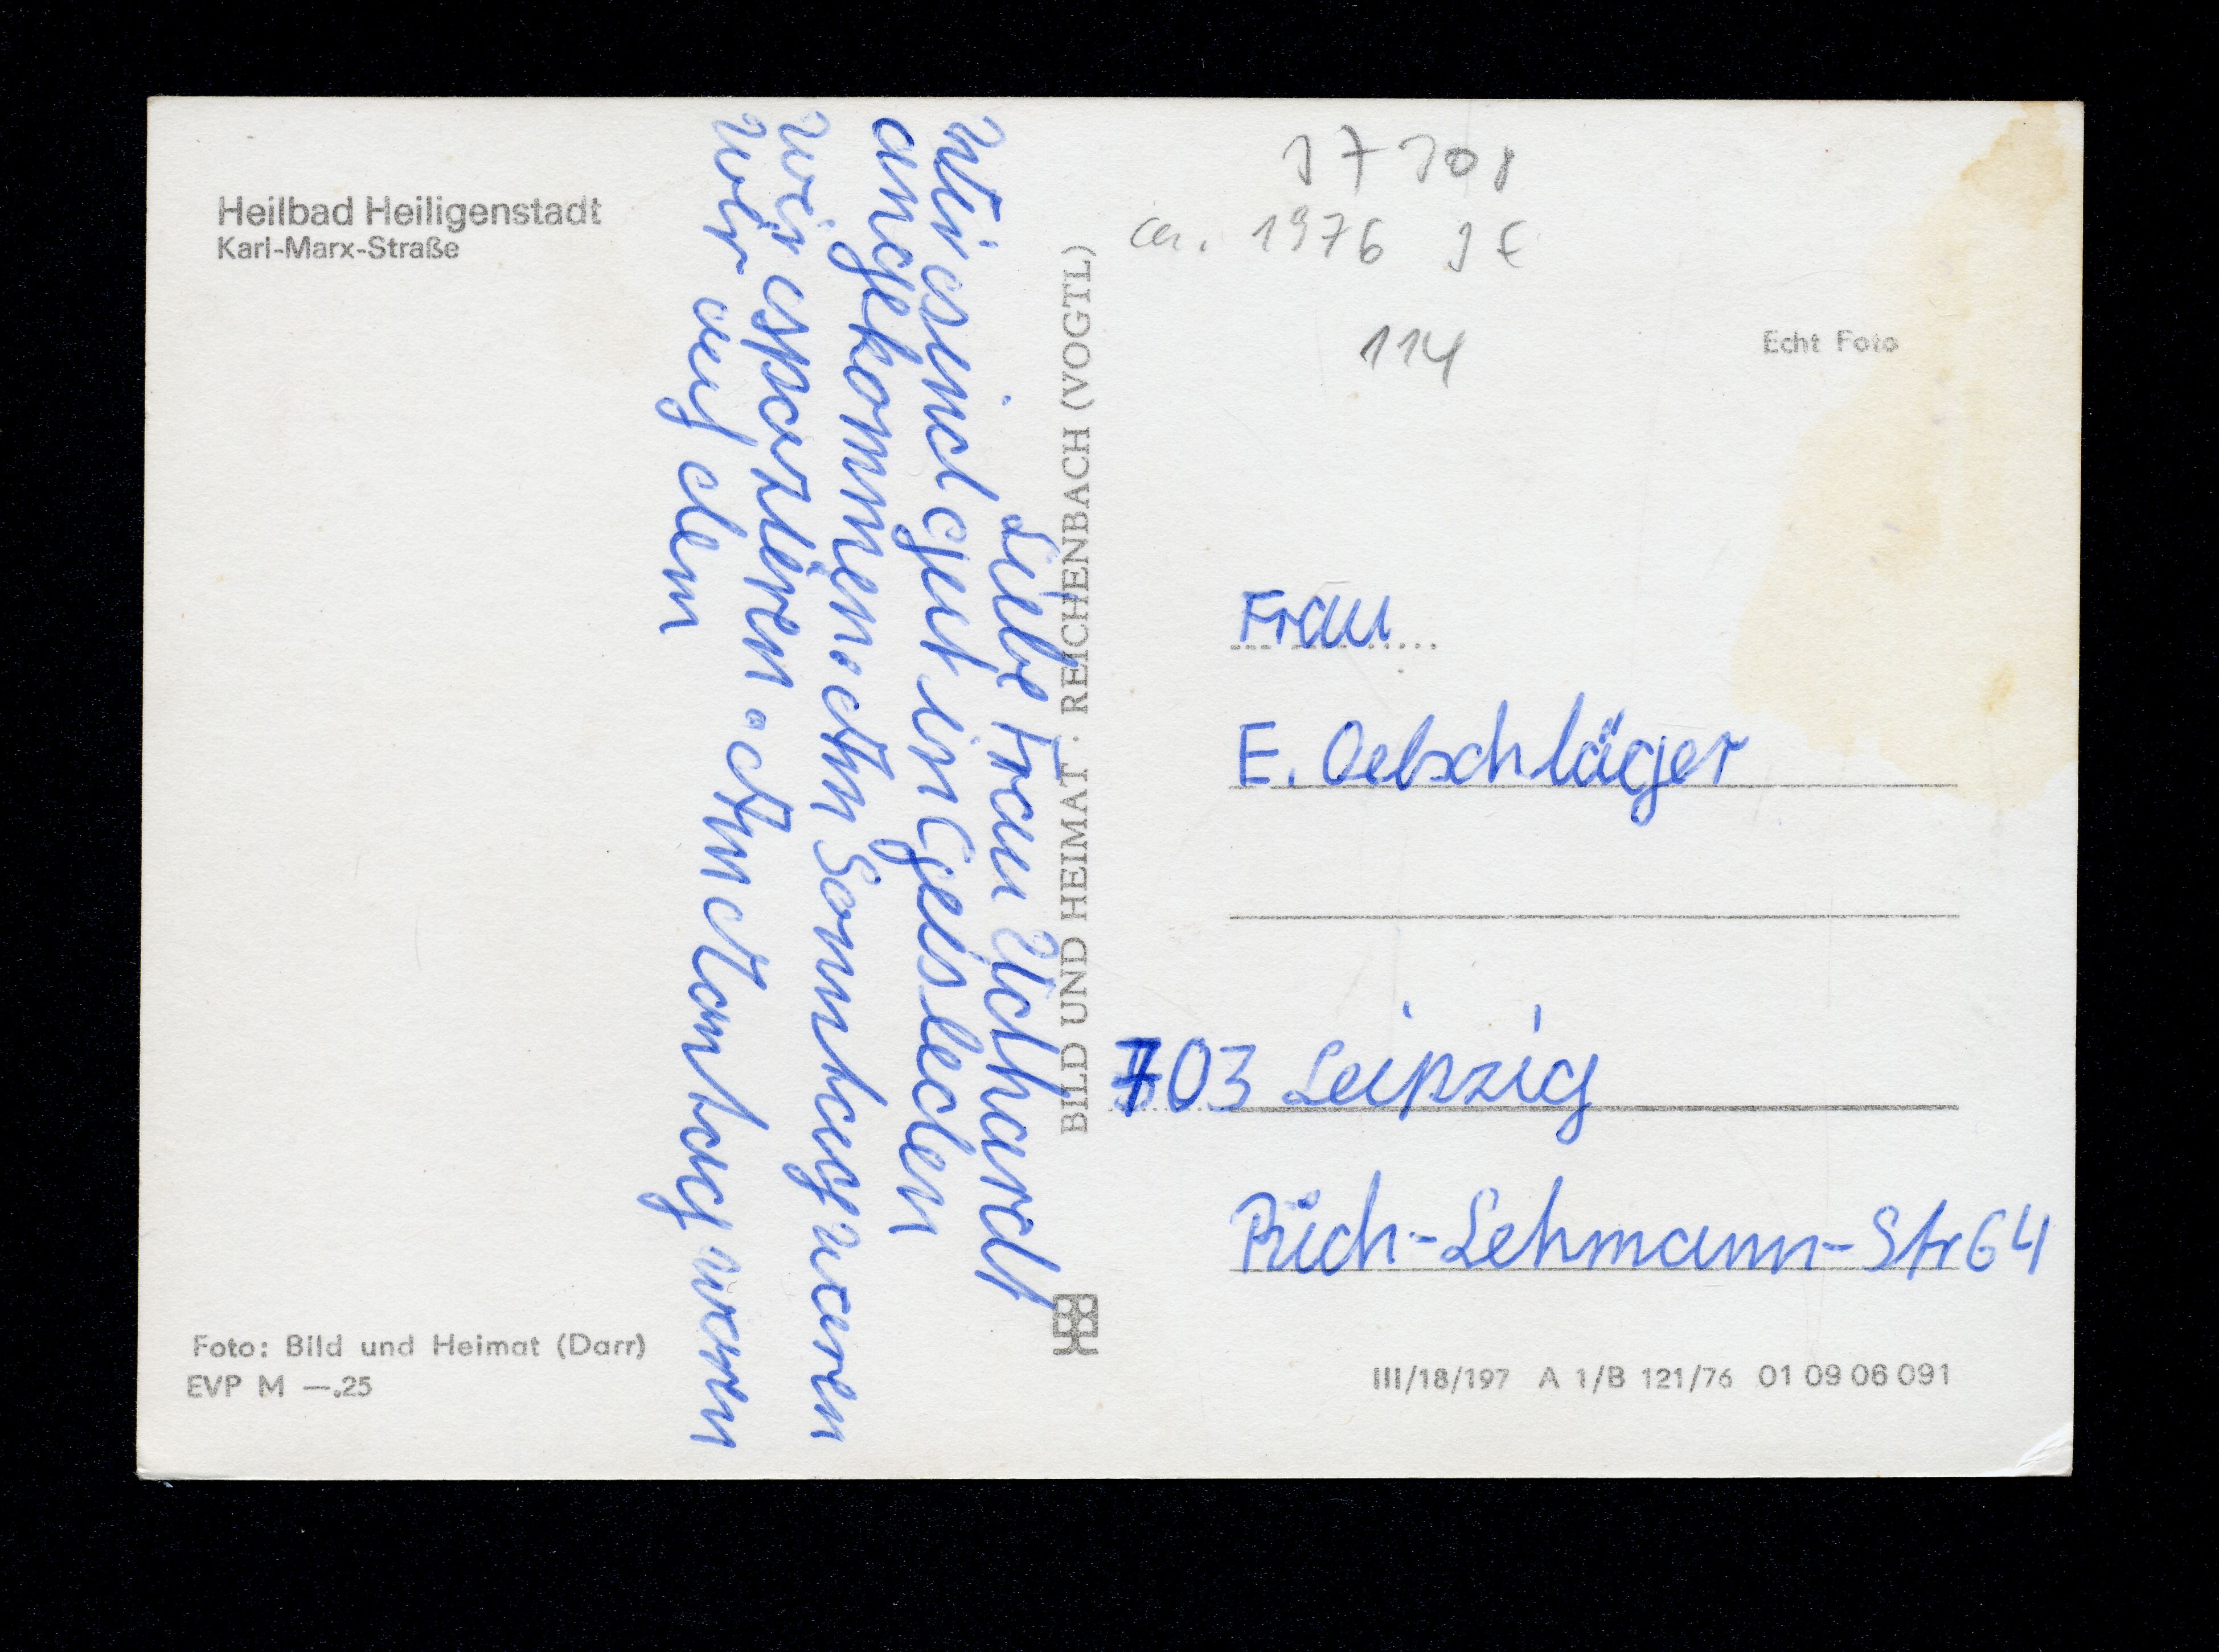 Heilbad Heiligenstadt
Karl-Marx-Straße
Liebe Frau
Wir sind gut in Geisleden
angekommen. Am Sonntag waren
wir spazieren. Am Montag waren
wir auf dem
Foto: Bild und Heimat (Darr)
EVP M —.25
BILD UND HEIMAT · REICHENBACH (VOGTL)
ca. 1976 3 €
114
Echt Foto
Frau
E. Oelschläger
703 Leipzig
Rich-Lehmann-Str 64
III/18/197 A 1/B 121/76 01 09 06 091